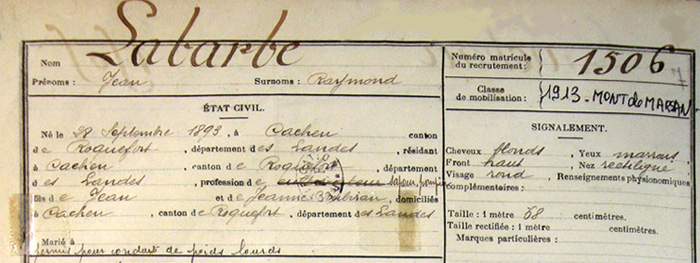 Nom Labarbe
Prénoms : Jean Surnoms : Raymond
Numéro matricule du recrutement : 1506
Classe de mobilisation : 1913 - MONT de MARSAN
ÉTAT CIVIL.
Né le 28 Septembre 1893, à Cachen canton
de Roquefort, département des Landes, résidant
à Cachen, canton de Roquefort, département
des Landes, profession de sapeur pompier
fils de Jean et de Jeanne, domiciliés
à Cachen, canton de Roquefort, département des Landes
Marié à
permis pour conduire de poids lourds
SIGNALEMENT.
Cheveux blonds, Yeux marrons
Front haut Nez rectiligne
Visage rond, Renseignements physionomiques
complémentaires :
Taille : 1 mètre 68 centimètres.
Taille rectifiée : 1 mètre centimètres.
Marques particulières :